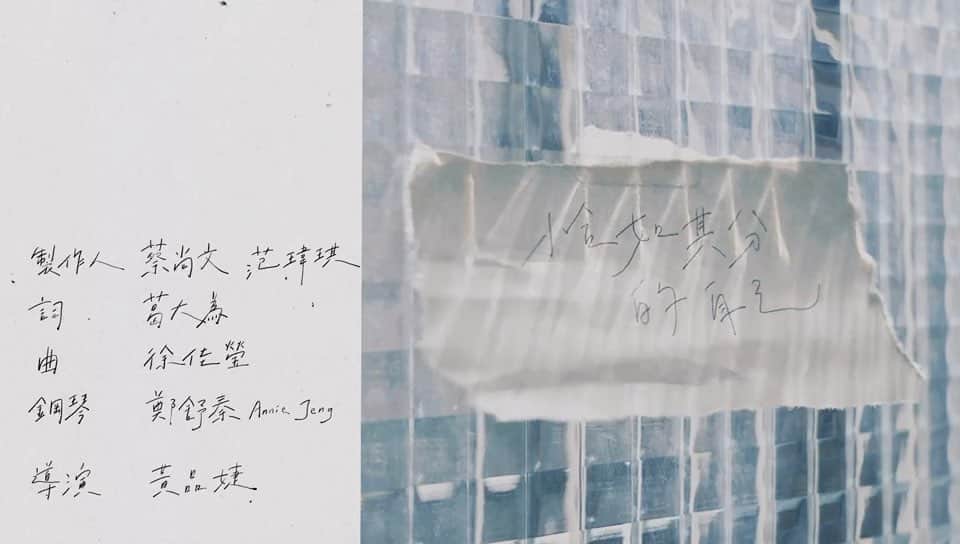 製作人 蔡尚文 范瑋琪
詞 葛大為
曲 徐佳瑩
鋼琴 鄭舒蓁 Annie Jeng
導演 黃品婕
恰如其分
的自己